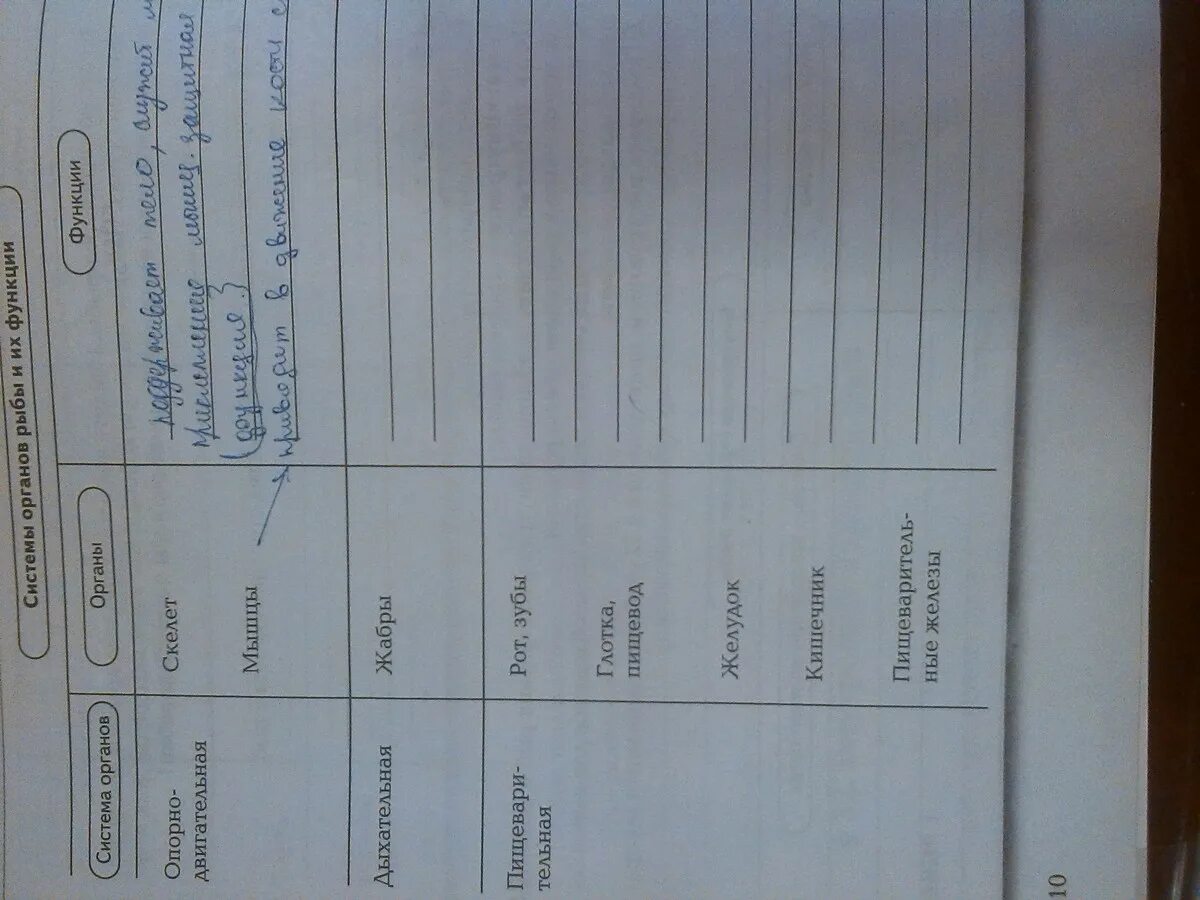 Системы органов рыбы и их функции
Система органов Органы Функции
Опорно-
двигательная
Скелет
поддерживает тело, служит
мышц. защитная
функция.)
Мышцы
приводит в движение кости с
Дыхательная
Жабры
Пищевари-
тельная
Рот, зубы
Глотка,
пищевод
Желудок
Кишечник
Пищеваритель-
ные железы
10